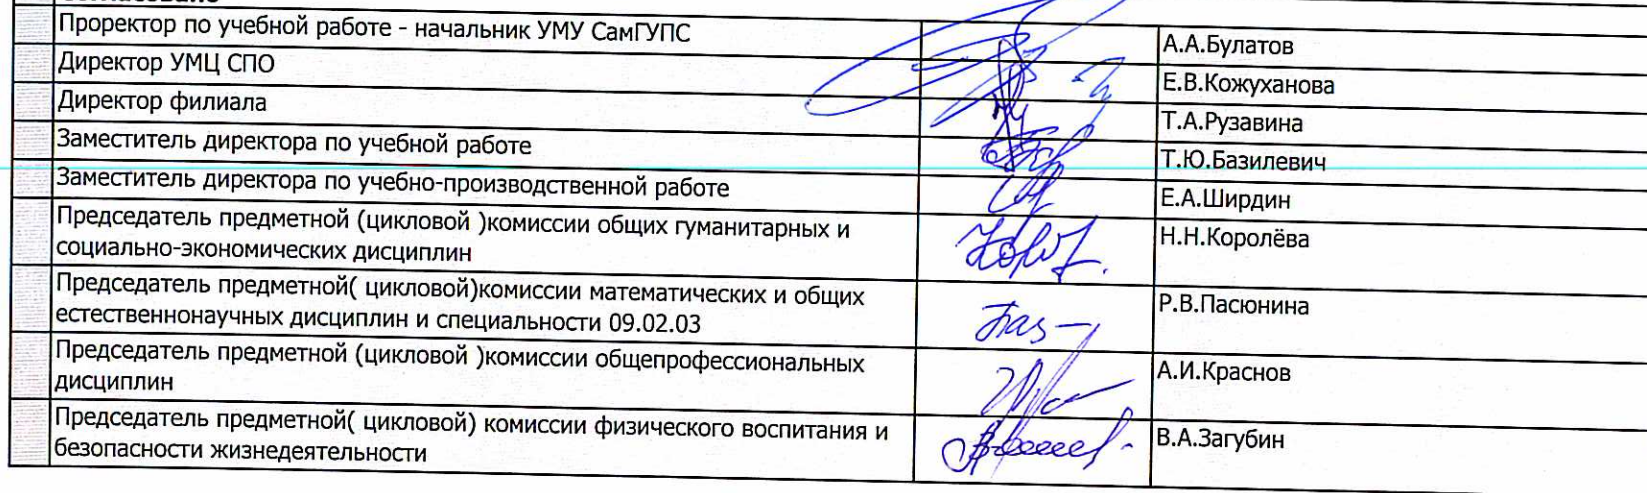 Проректор по учебной работе - начальник УМУ СамГУПС А.А.Булатов
Директор УМЦ СПО Е.В.Кожуханова
Директор филиала Т.А.Рузавина
Заместитель директора по учебной работе Т.Ю.Базилевич
Заместитель директора по учебно-производственной работе Е.А.Ширдин
Председатель предметной (цикловой )комиссии общих гуманитарных и
социально-экономических дисциплин Н.Н.Королёва
Председатель предметной( цикловой)комиссии математических и общих
естественнонаучных дисциплин и специальности 09.02.03 Р.В.Пасюнина
Председатель предметной (цикловой )комиссии общепрофессиональных
дисциплин А.И.Краснов
Председатель предметной( цикловой) комиссии физического воспитания и
безопасности жизнедеятельности В.А.Загубин